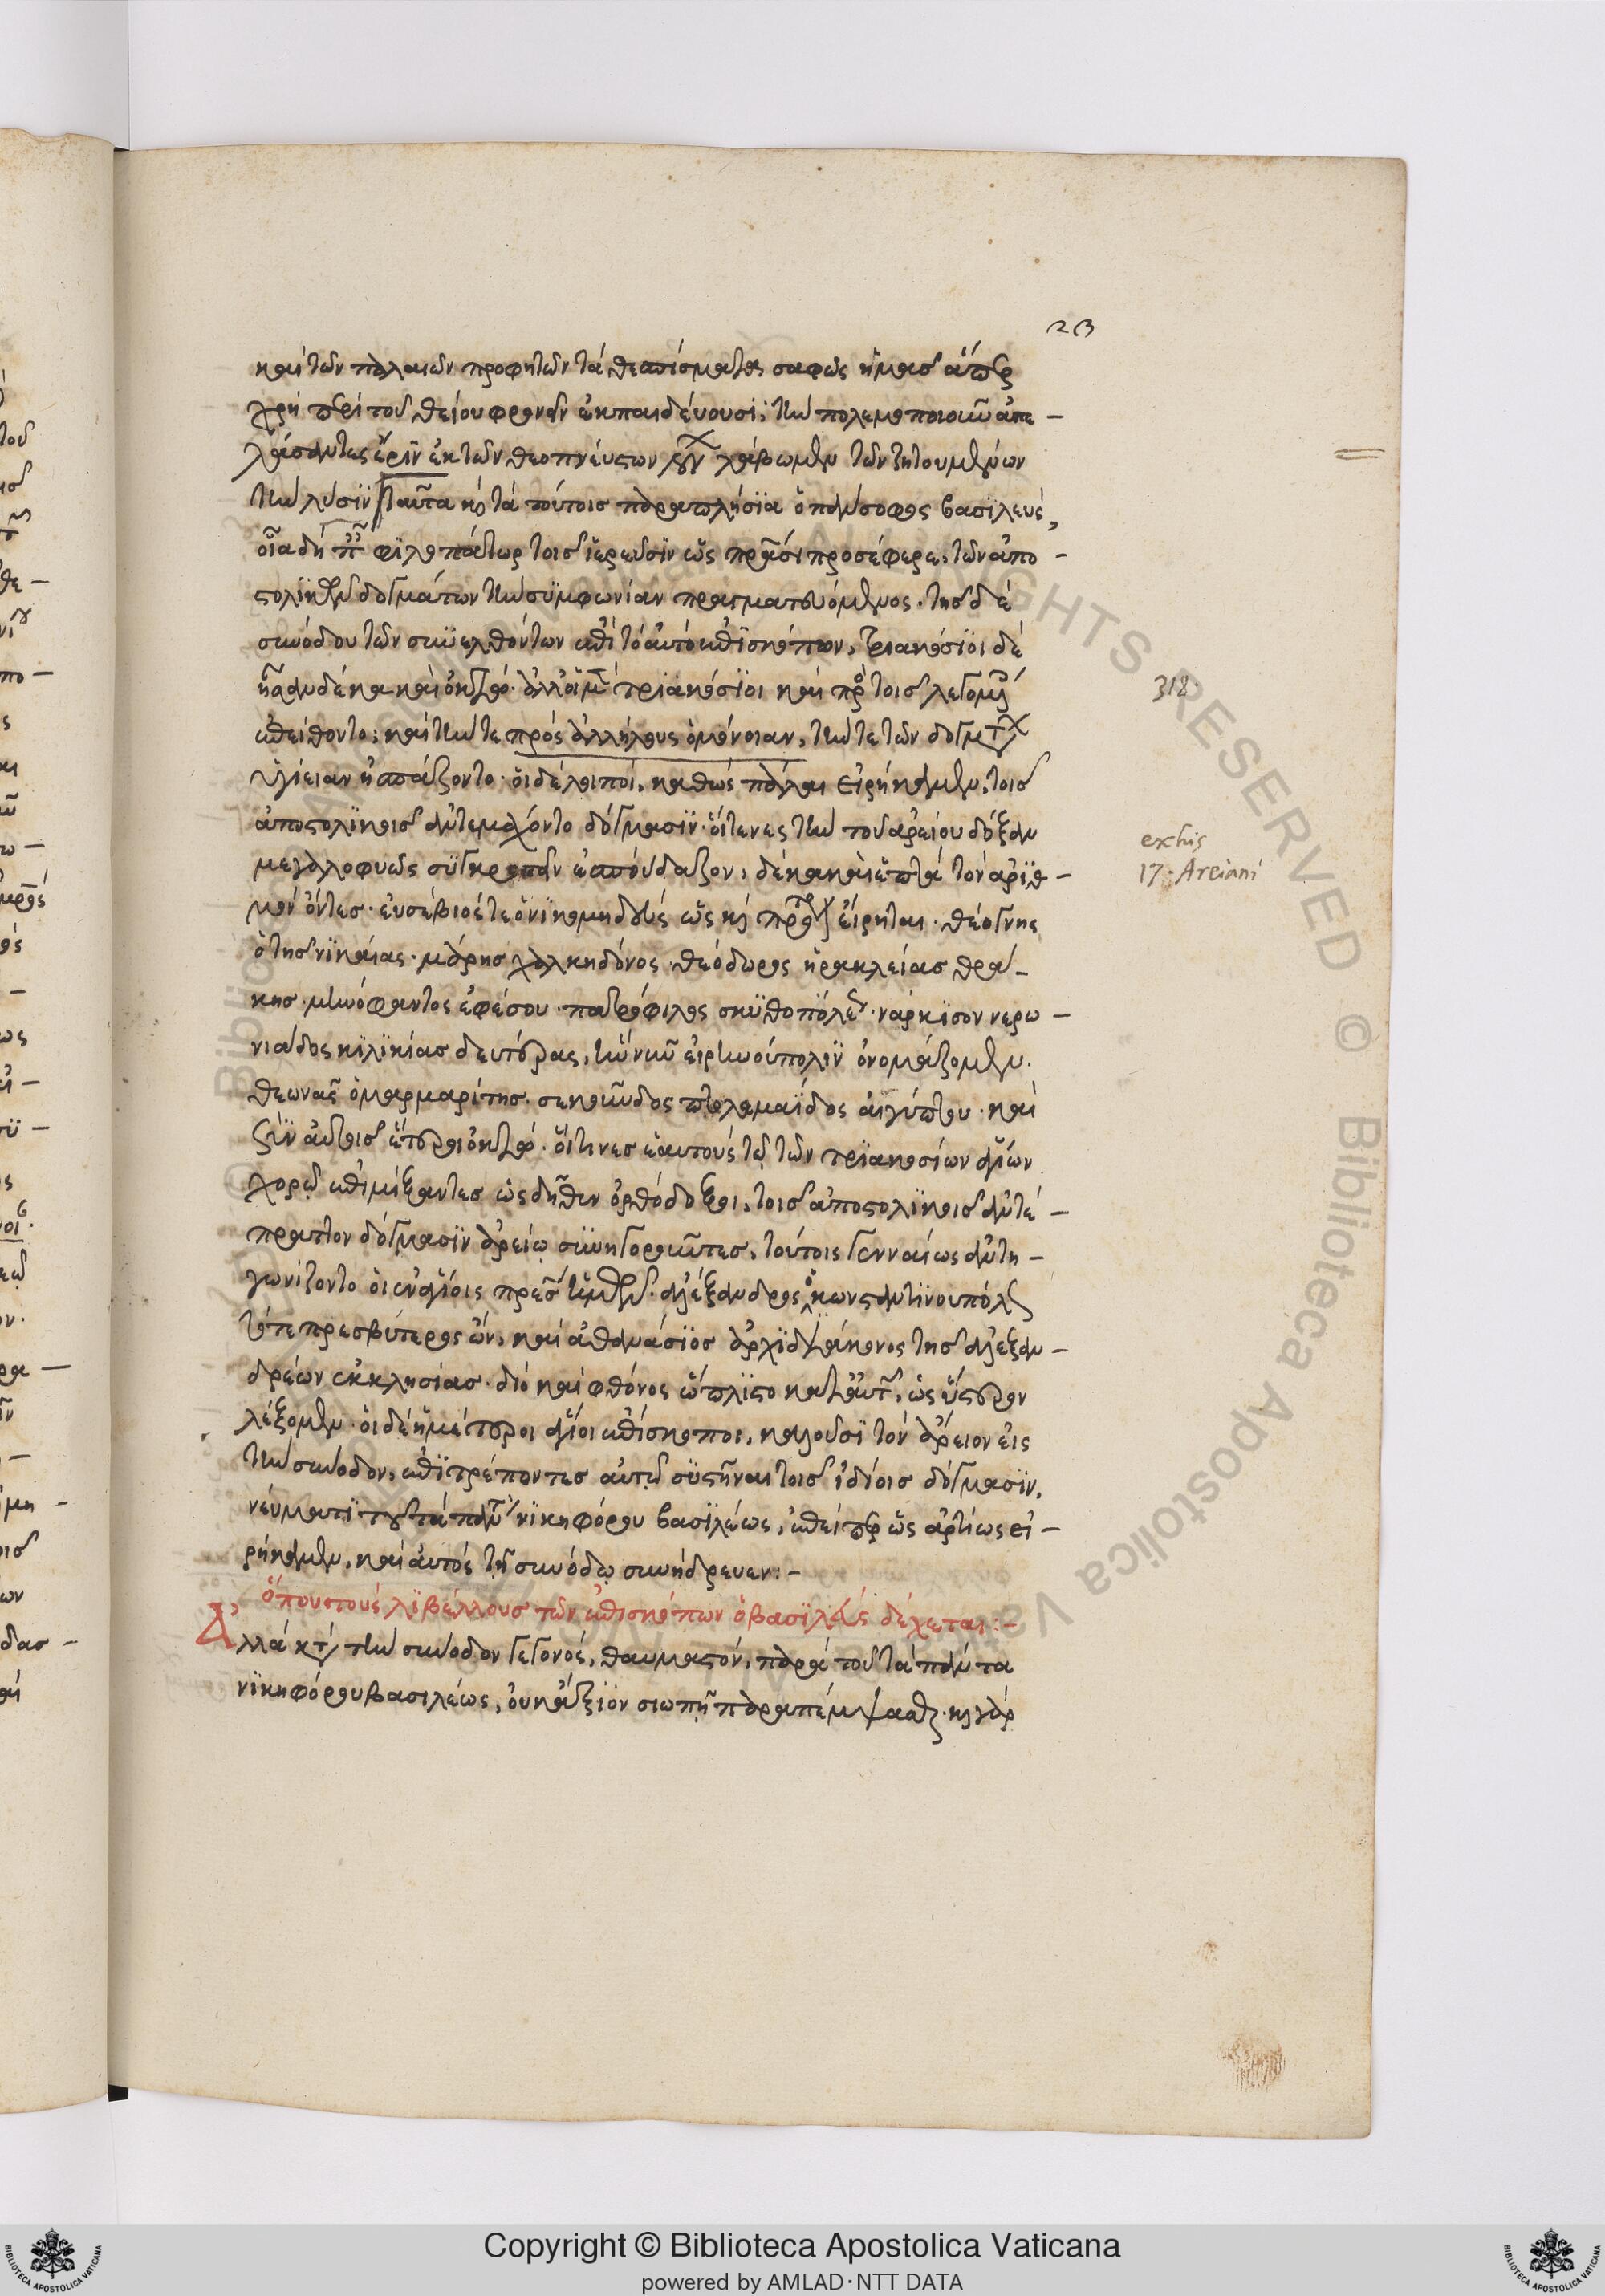 213
καὶ τῶν παλαιῶν προφητῶν τὰ θεσπίσματα, σαφῶς ἡμᾶς ἅπερ
χρὴ περὶ τοῦ θείου φρονεῖν ἐκπαιδεύουσι· τὴν πολεμοποιοῦν ἀπε –
λάσαντες ἔριν ἐκ τῶν θεοπνεύστων λόγων λάβωμεν τῶν ζητουμένων
τὴν λύσϊν ταῦτα καὶ τὰ τούτοις παραπλήσϊα ὁ πάνσοφος βασϊλεὺς,
οἷα δὴ παῖς φϊλοπάτωρ τοῖς ἱερεῦσϊν ὡς πατράσι προσέφερε, τῶν ἀπο –
στολϊκῶν δογμάτων τὴν σϋμφωνίαν πραγματευόμενος. τῆς δὲ
συνόδου τῶν σϋνελθόντων ἐπὶ τὸ αὐτὸ ἐπϊσκόπων, τριακόσϊοι δέ
ἦσαν δέκα καὶ ὀκτώ. ἀλλ' οἱ μὲν τρϊακόσϊοι καὶ πρῶτοι τοῖς λεγομένοις
ἐπείθοντο· καὶ τήν τε πρὸς ἀλλήλους ὁμόνοιαν, τήν τε τῶν δογμάτων
ὑγίειαν ἠσπάζοντο· οἱ δὲ λοιποὶ, καθὼς πάλαι εἰρήκαμεν, τοῖς
ἀποστολϊκοῖς ἀντεμάχοντο δόγμασϊν· οἵτενες τὴν τοῦ ἀρείου δόξαν
μεγαλοφυῶς σϋγκροτεῖν ἐσπούδαζον, δέκα καὶ ἑπτὰ τὸν ἀρϊθ –
μὸν ὄντες. εὐσέβιός τε ὁ νϊκομηδεὺς ὡς καὶ πρότερον εἴρηται. θέογνης
ὁ τῆς νϊκαίας. μάρης χαλκηδόνος. θεόδωρος ἡρακλείας θρά –
κης. μηνόφαντος ἐφέσου. πατρόφιλος σκϋθοπόλεως. νάρκϊσον νερω –
νιάδος κϊλϊκίας δευτέρας, ἣν νῦν εἰρηνούπολϊν ὀνομάζομεν.
θεωνᾶς ὁ μαρμαρίτης. σεκοῦνδος πτολεμαΐδος αἰγύπτου. καὶ
σὺν αὐτοῖς ἕτεροι ὀκτώ. οἵτινες ἑαυτοὺς τῷ τῶν τρϊακοσίων ἁγίων
χορῷ ἐπιμίξαντες ὡς δῆθεν ὀρθόδοξοι, τοῖς ἀποστολϊκοῖς ἀντέ –
πραττον δόγμασϊν ἀρείῳ σϋνηγοροῦντες, τούτοις γενναίως ἀντη –
γωνίζοντο οἱ ἐν ἁγίοις πατέρες ἡμῶν. ἀλέξανδρος ὁ κωνσταντϊνουπόλεως
τότε πρεσβύτερος ὤν, καὶ ἀθανάσϊος ἀρχϊδιάκονος τῆς ἀλεξαν –
δρέων ἐκκλησίας. διὸ καὶ φθόνος ὥπλϊστο κατ' αὐτῶν, ὡς ὕστερον
λέξομεν. οἱ δὲ ἡμέτεροι ἅγιοι ἐπίσκοποι, καλοῦσϊ τὸν ἄρειον εἰς
τὴν σύνοδον, ἐπϊτρέποντες αὐτῷ σϋστῆναι τοῖς ἰδίοις δόγμασϊν,
νεύματϊ τοῦ τὰ πάντα νϊκηφόρου βασϊλέως, ἐπείπερ ὡς ἀρτίως εἰ –
ρήκαμεν, καὶ αὐτὸς τῇ συνόδῳ συνήδρευεν:–
ὅπου τοὺς λϊβέλλους τῶν ἐπισκόπων ὁ βασϊλεὺς δέχεται:–
Ἀλλὰ κατὰ τὴν σύνοδον γεγονός, θαυμαστόν, παρὰ τοῦ τὰ πάντα
νϊκηφόρου βασιλέως, οὐκ ἄξϊον σιωπῇ παραπέμψασθαι. καὶ γὰρ
318
ex his
17. Areiani